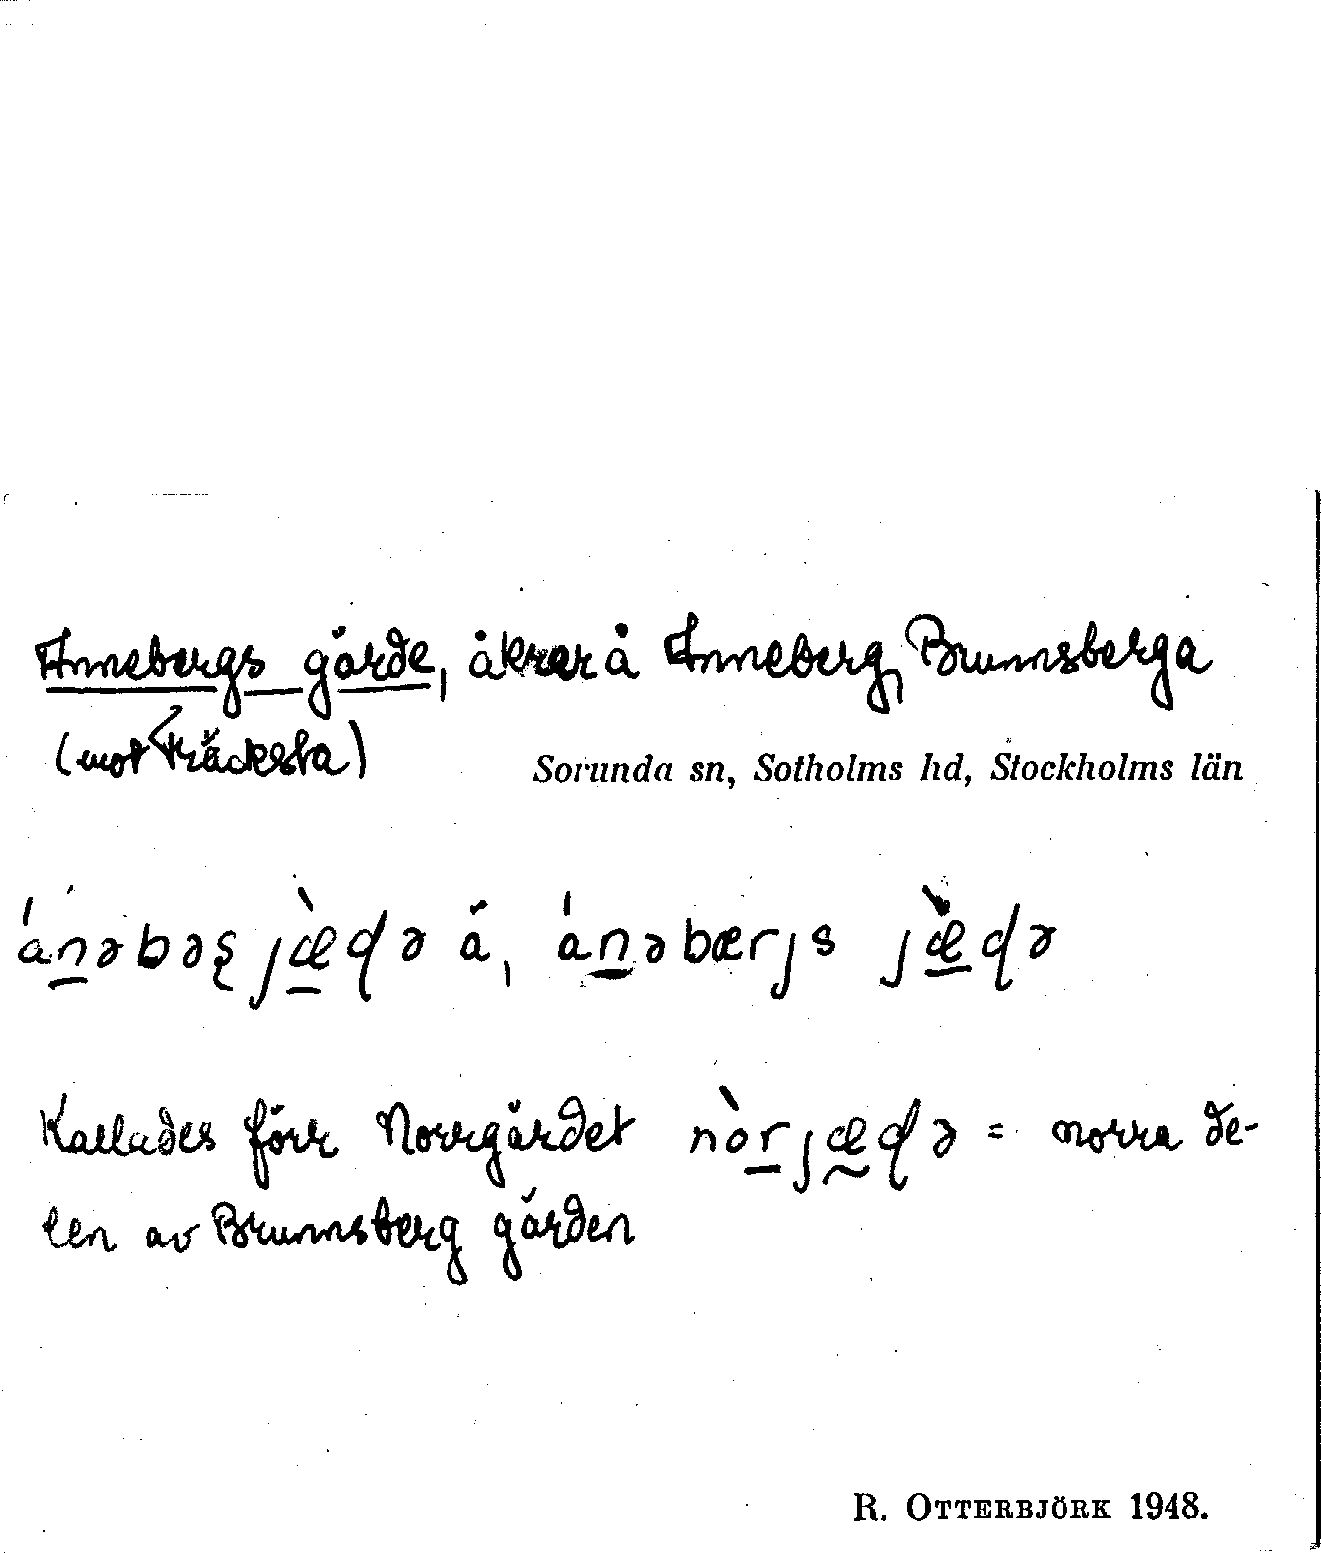 Annebergs gärde, åkrar å Anneberg, Brunnsberga
(mot Träcksta)
Sorunda sn, Sotholms hd, Stockholms län
Kallades förr Norrgärdet = norra de-
len av Brunnsberg gärden
R. OTTERBJÖRK 1948.